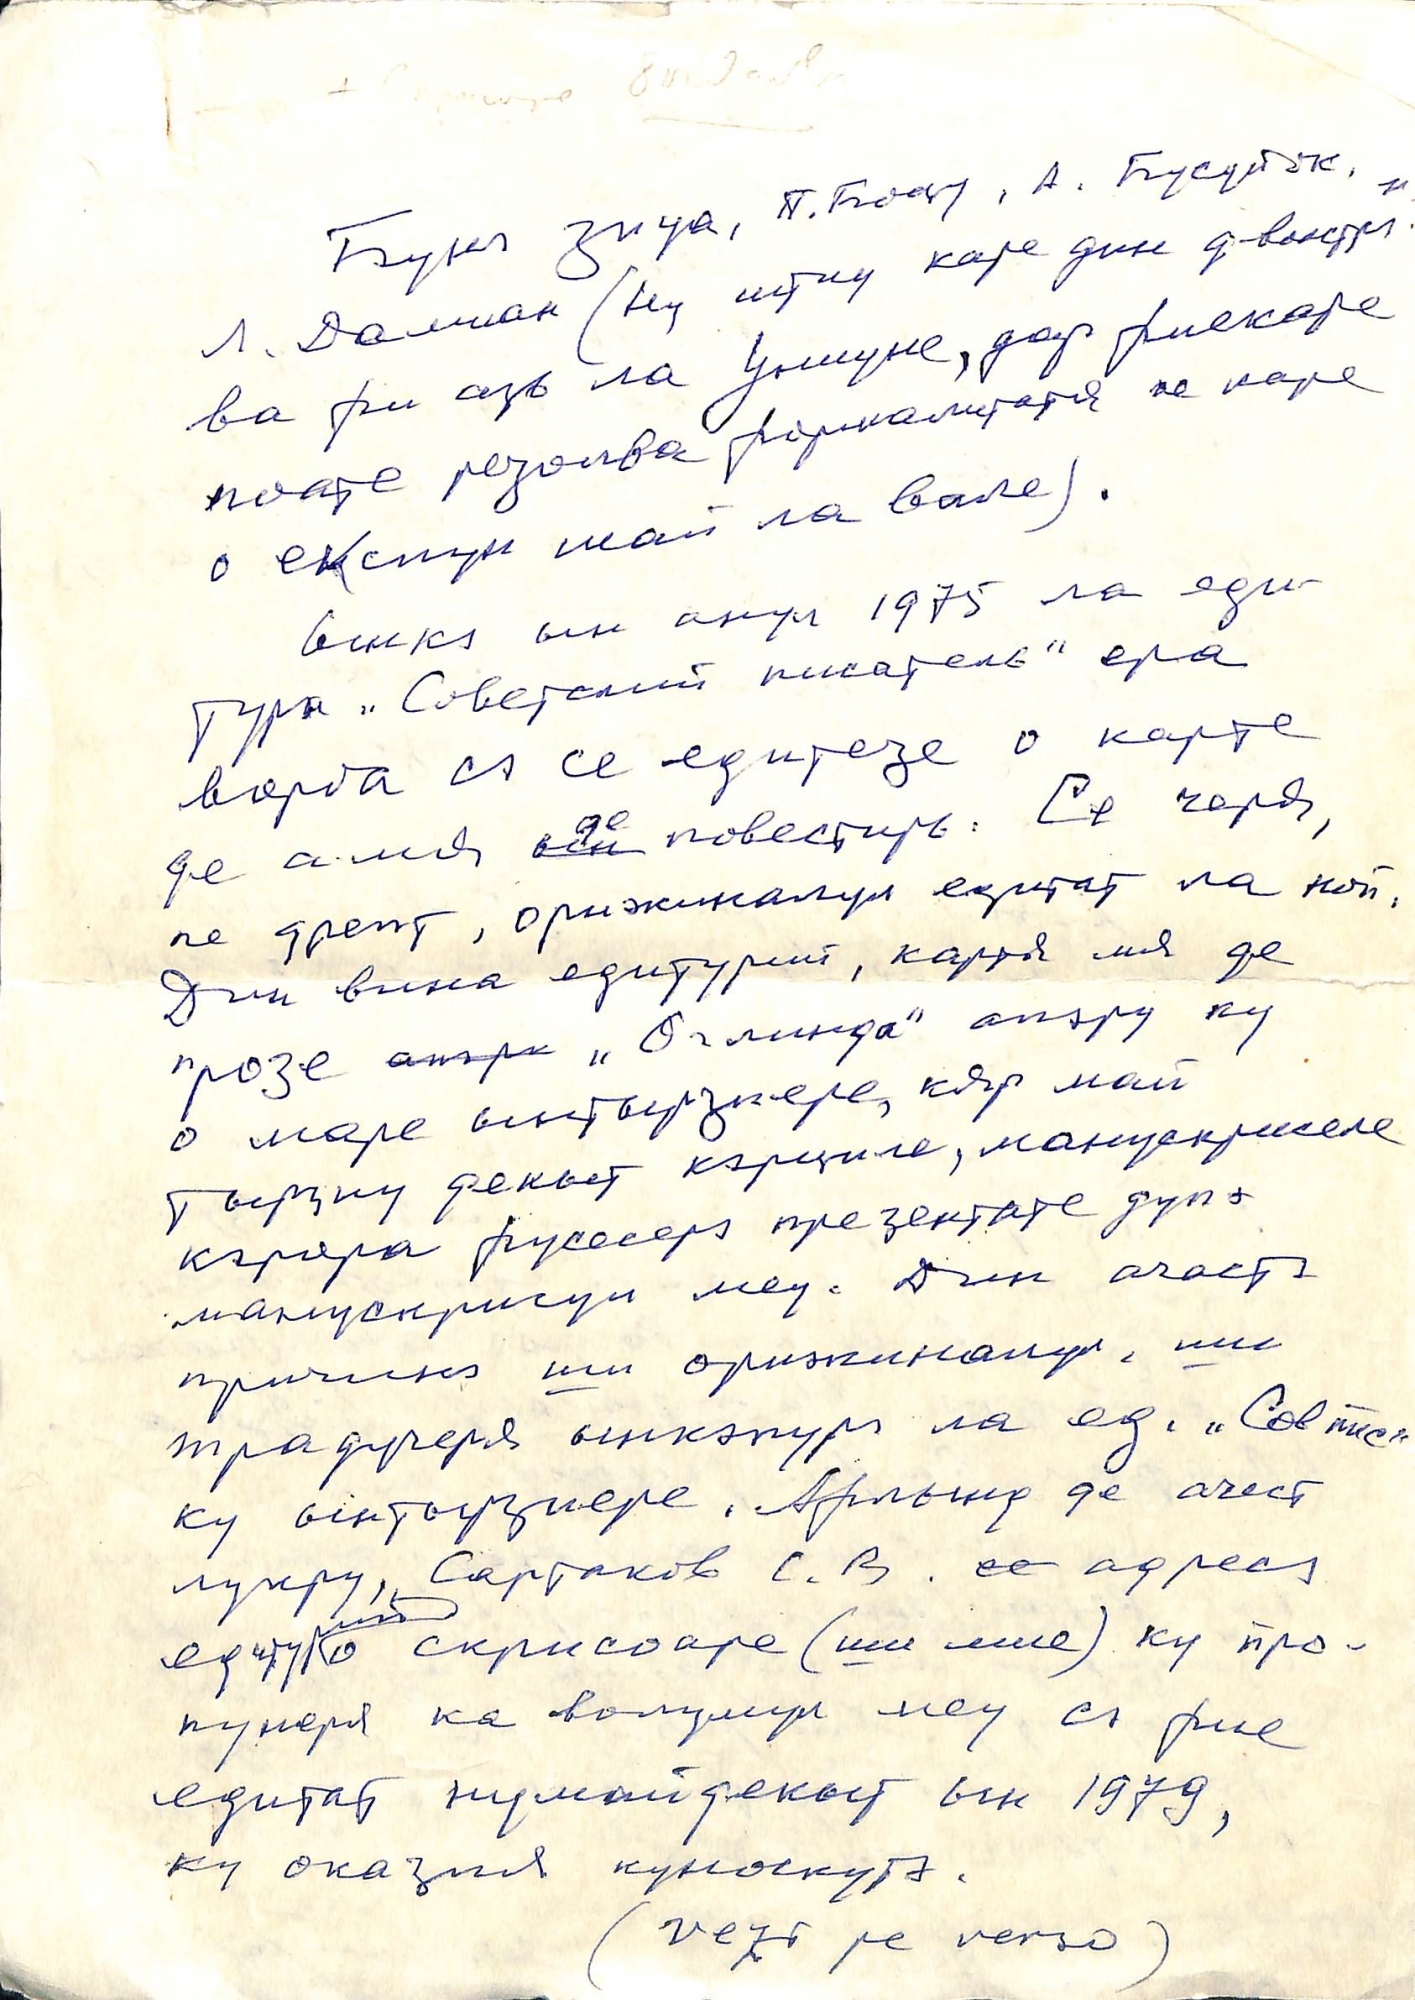 Бунэ зиуа, П. Боцу, А. Бусуйок,
Л. Дамиан (ну штиу каре дин д-воастрэ
ва фи азь ла Униуне, дар фиекаре
поате резолва формалитатя пе каре
о експун май ла вале).
Ынкэ ын анул 1975 ла еди-
тура „Советский писатель" ера
ворба сэ се едитезе о карте
де а мя де повестирь. Се черя,
пе дрепт, орижиналул едитат ла ной.
Дин вина едитурий, картя мя де
прозе апэру „Оглинда" апэру ку
о маре ынтырзиере, кяр май
тырзиу декыт кэрциле, манускриселе
кэрора фусесерэ презентате дупэ
манускрисул меу. Дин ачастэ
причинэ ши орижиналул, ши
традучеря ынкэпурэ ла ед. „Сов пис"
ку ынтырзиере. Афлынд де ачест
лукру, Сартаков С. В. се адресэ
едитурий о скрисоаре (ши мие) ку про-
пунеря ка волумул меу сэ фие
едитат нумайдекыт ын 1979,
ку оказия куноскутэ.
(vezi pe verso)